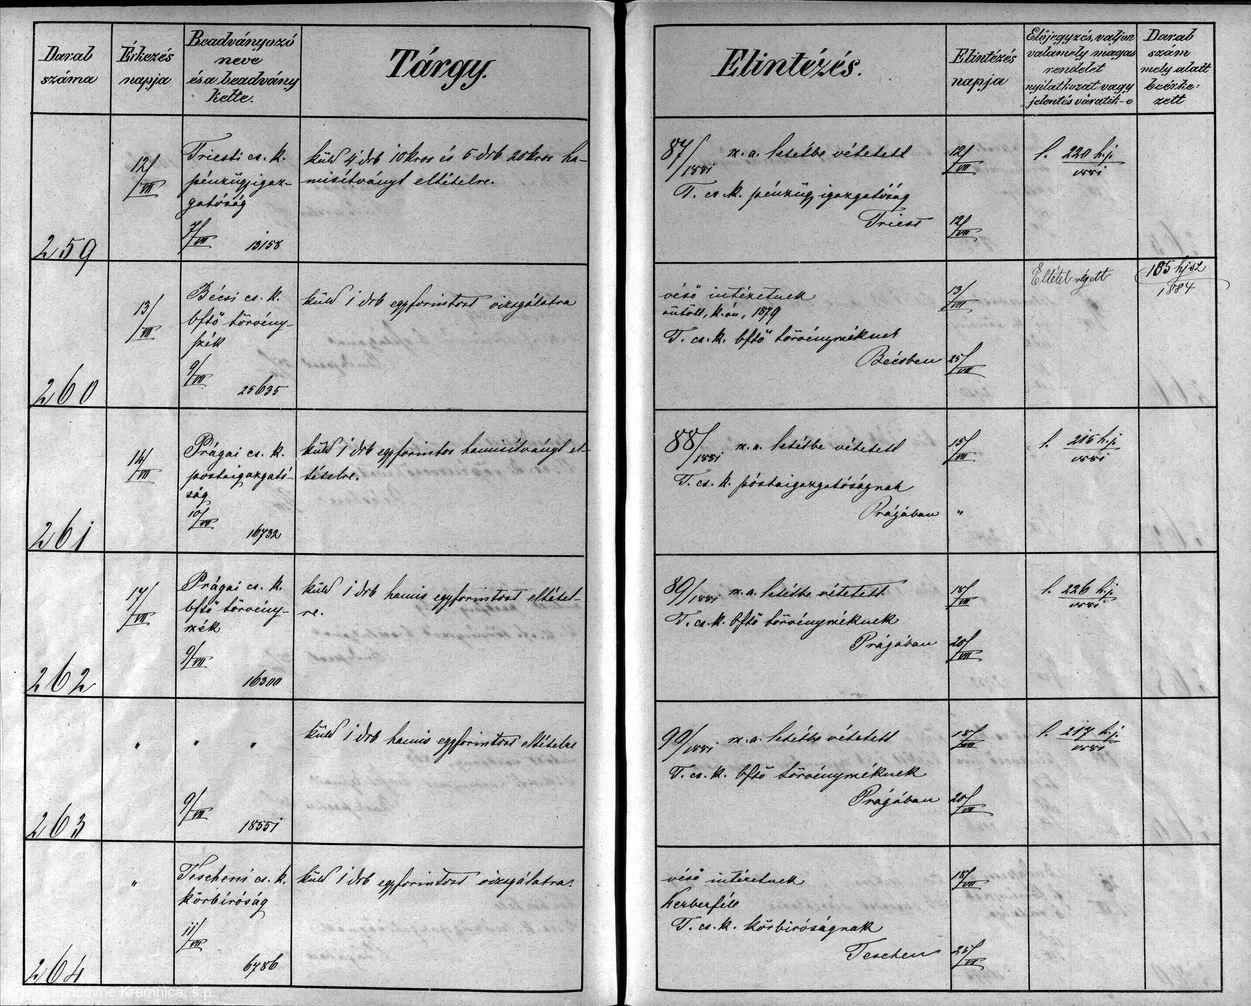 Darab száma
Érkezés napja
Beadványozó neve és a beadvány kelte.
Tárgy.
Elintézés.
Elintézés napja
Előjegyzés, valjon valamely magas rendelet nyilatkozat vagy jelentés váratik-e
Darab szám mely alatt beérke-zett
259
12/VII
Triesti cs. k.
pénzügyigaz-
gatóság
7/VII 13158
küld 4 drb 10 kros és 5 drb 20 kros ha-
misítványt eltételre.
87/1881 sz. a. letétbe vétetett
T. cs. k. pénzügyigazgatóság
Triest
12/VII
12/VII
l. 220 h.j.
1881
260
13/VII
Bécsi cs. k.
bftő törvény-
szék
9/VII 25635
küld 1 drb egyforintost vizsgálatra
véső intézetnek
öntött, k. ón, 1879
T. cs. k. bftő törvényszéknek
Bécsben
13/VII
25/VII
Eltétel végett
185 hj sz
1884
261
14/VII
Prágai cs. k.
postaigazgató-
ság
10/VII 16732
küld 1 drb egyforintos hamisítványt el-
tételre.
88/1881 sz. a. letétbe vétetett
T. cs. k. póstaigazgatóságnak
Prágában
15/VII
"
l. 215 h.j.
1881
262
17/VII
Prágai cs. k.
bftő törvény-
szék
9/VII 16300
küld 1 drb hamis egyforintost eltétel-
re.
89/1881 sz. a. letétbe vétetett
T. cs. k. bftő törvényszéknek
Prágában
18/VII
20/VII
l. 226 h.j.
1881
263
"
" "
9/VII 18551
küld 1 drb hamis egyforintost eltételre
90/1881 sz. a. letétbe vétetett
T. cs. k. bftő törvényszéknek
Prágában
18/VII
20/VII
l. 217 h.j.
1881
264
"
Tescheni cs. k.
körbíróság
11/VII 6786
küld 1 drb egyforintost vizsgálatra.
véső intézetnek
Kerberféle
T. cs. k. körbiróságnak
Teschen
18/VII
25/VII
Mincovne Kremnica, š.p.